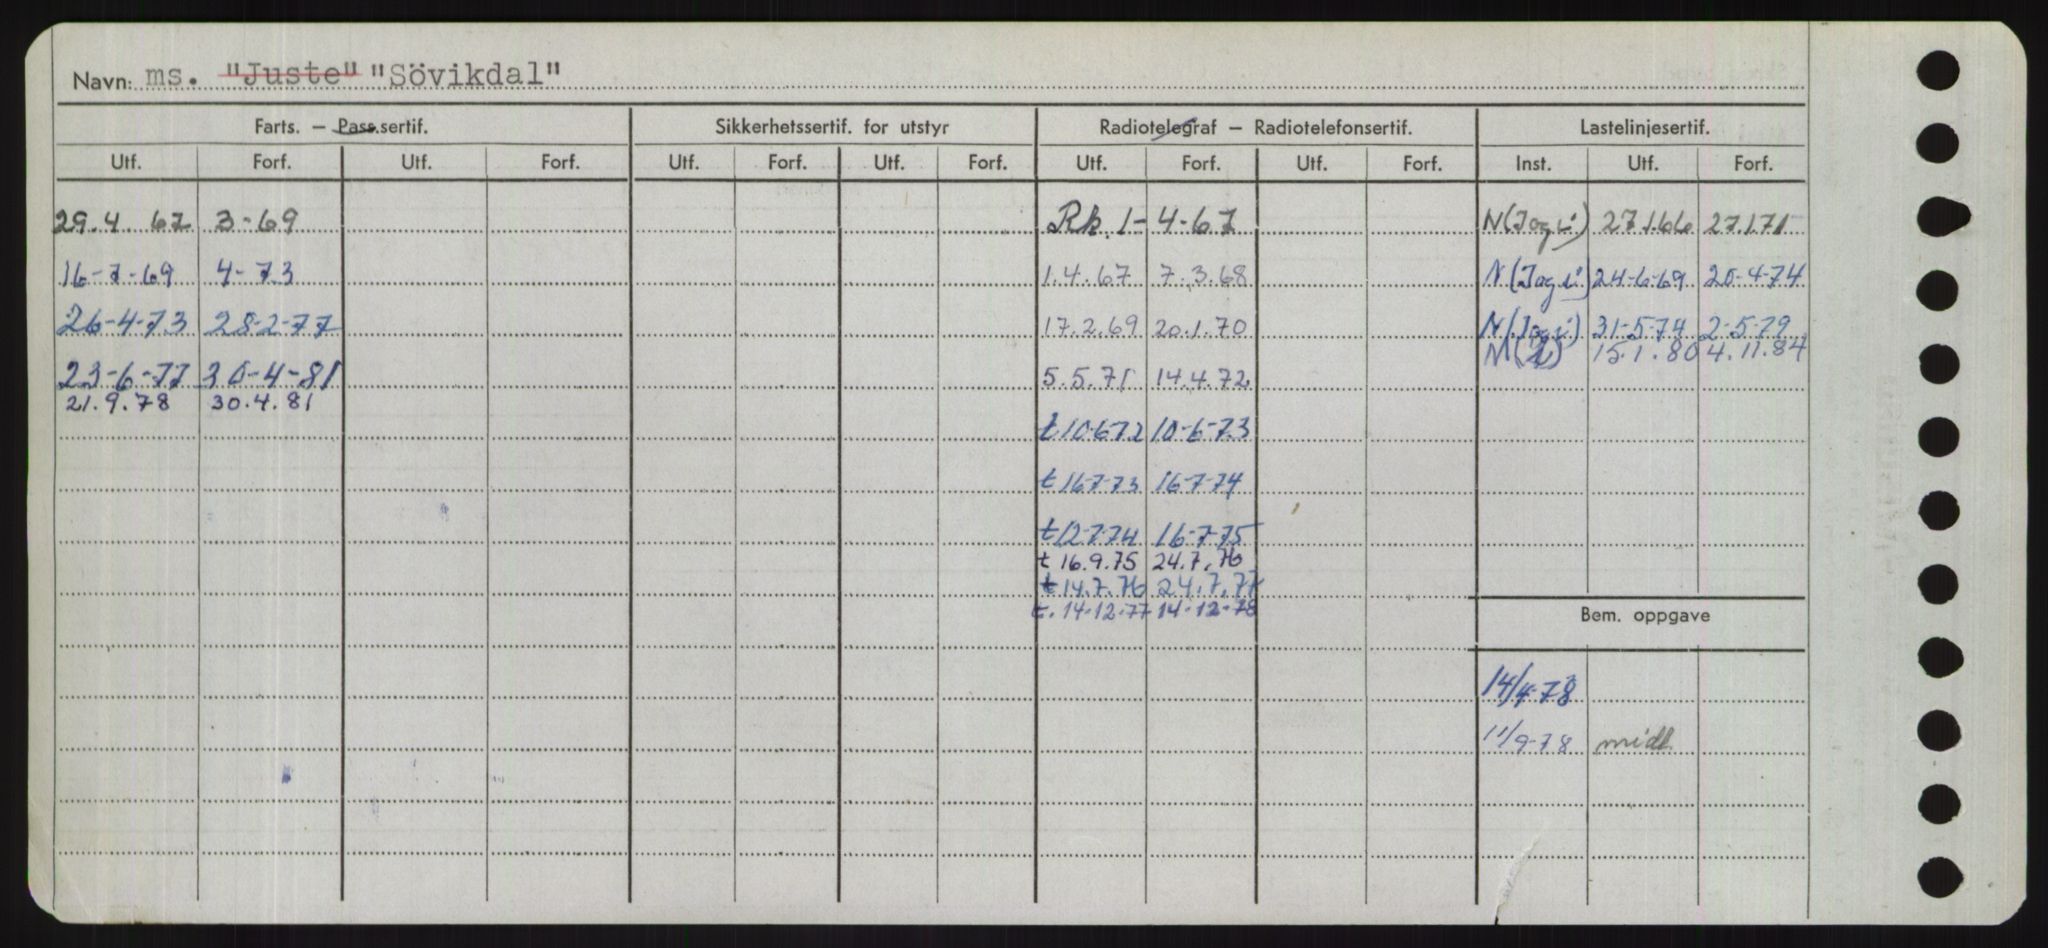 Navn: ms. "Juste" "Sövikdal"
Farts. — Pass.sertif. Sikkerhetssertif. for utstyr Radiotelegraf — Radiotelefonsertif. Lastelinjesertif.
Utf. Forf. Utf. Forf. Utf. Forf. Utf. Forf. Utf. Forf. Utf. Forf. Inst. Utf. Forf.
29.4. 67 3-69 Rk. 1-4-67 N(Jog i) 27.1.66 27.1.71
16-7-69 4-73 1.4.67 7.3.68 N(Jog i) 24-6-69 20-4-74
26-4-73 28-2-77 17.2.69 20.1.70 N(Jog i) 31-5-74 2-5-79
N( ) 15.1.80 4.11.84
23-6-77 30-4-81 5.5.71 14.4.72
21.9.78 30.4.81
t 10-6-72 10-6-73
t 16-7-73 16-7-74
t 12-7-74 16-7-75
t 16.9.75 24.7.76
t 14.7.76 24.7.77
t. 14-12-77 14-12-78
Bem. oppgave
14/4-78
11/9-78 midl.